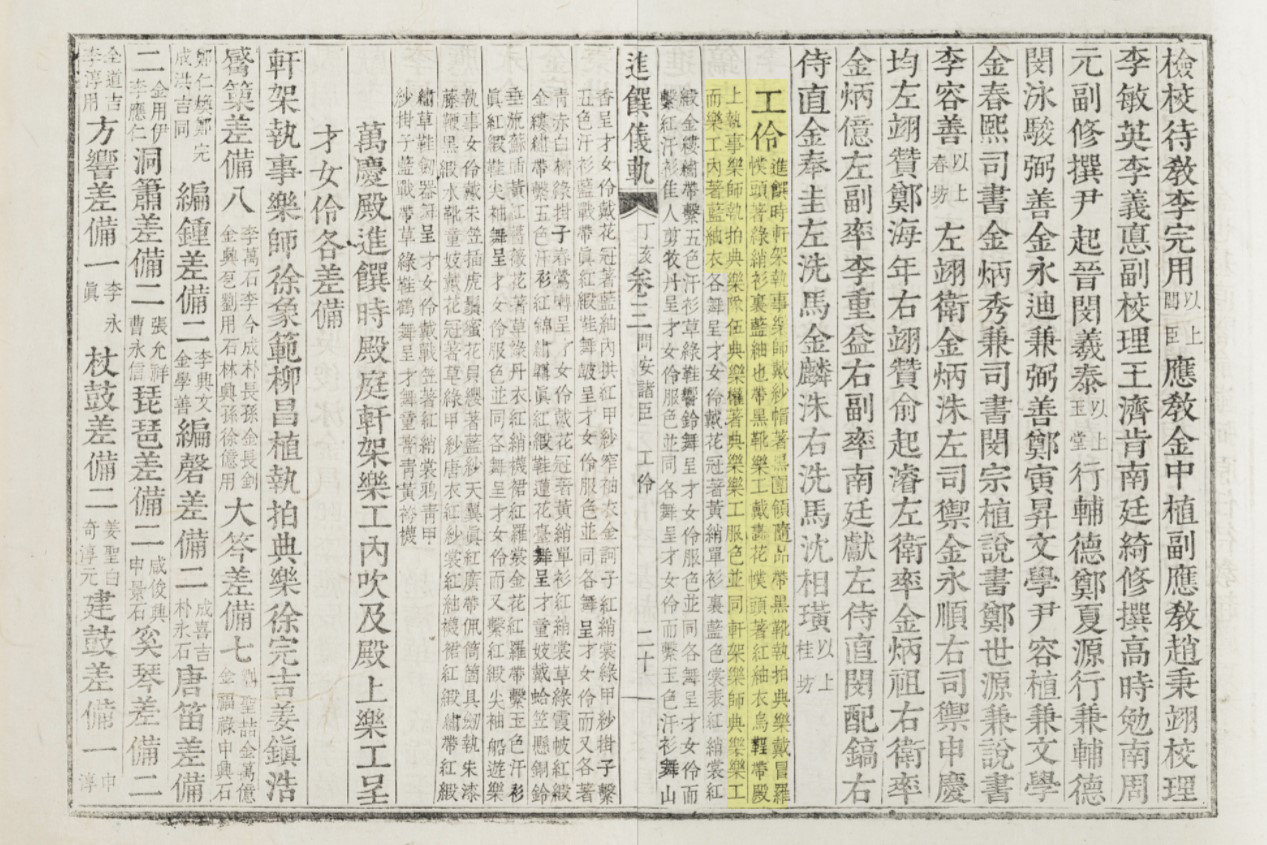 檢校待敎李完用以上閣臣應敎金中植副應敎趙秉翊校理
李敏英李義悳副校理王濟肯南廷綺修撰高時勉南周
元副修撰尹起晉閔羲泰以上玉堂行輔德鄭夏源行兼輔德
閔泳駿弼善金永迪兼弼善鄭寅昇文學尹容植兼文學
金春熙司書金炳秀兼司書閔宗植說書鄭世源兼說書
李容善以上春坊左翊衛金炳洙左司禦金永順右司禦申慶
均左翊贊鄭海年右翊贊俞起濬左衛率金炳祖右衛率
金炳億左副率李重益右副率南廷獻左侍直閔配鎬右
侍直金奉圭左洗馬金麟洙右洗馬沈相璜以上桂坊
工伶
進饌時軒架執事樂師戴紗帽著黑團領隨品帶黑靴執拍典樂戴冒羅
幞頭著綠綃衫裏藍紬也帶黑靴樂工戴畵花幞頭著紅紬衣烏鞓帶殿
上執事樂師執拍典樂隊伍典樂權著典樂樂工服色並同軒架樂師典樂樂工
而樂工內著藍紬衣各舞呈才女伶戴花冠著黃綃單衫裏藍色裳表紅綃裳紅
緞金縷繡帶繫五色汗衫草綠鞋響鈴舞呈才女伶服色並同各舞呈才女伶而
繫紅汗衫佳人剪牧丹呈才女伶服色並同各舞呈才女伶而繫玉色汗衫舞山
進饌儀軌 丁亥 卷三 問安諸臣 工伶 二十一
香呈才女伶戴花冠著藍紬內拱紅甲紗窄袖衣金訶子紅綃裳綠甲紗掛子繫
五色汗衫藍戰帶眞紅緞鞋舞皷呈才女伶服色並同各舞呈才女伶而又各著
靑赤白柳綠掛子春鶯囀呈才女伶戴花冠著黃綃單衫紅綃裳草綠霞帔紅緞
金縷繡帶繫五色汗衫紅錦繡韝眞紅緞鞋蓮花臺舞呈才童妓戴蛤笠懸銅鈴
垂流蘇插黃紅薔薇花著草綠丹衣紅綃襪裙紅羅裳金花紅羅帶繫玉色汗衫
眞紅緞鞋尖袖舞呈才女伶服色並同各舞呈才女伶而又繫紅緞尖袖船遊樂
執事女伶戴朱笠揷虎鬚蜜花貝纓著藍紗天翼眞紅廣帶佩筒箇具劒執朱漆
藤鞭黑緞水靴童妓戴花冠著草綠甲紗唐衣紅紗裳紅紬襪裙紅緞繡帶紅緞
繡草鞋劒器舞呈才女伶戴戰笠著紅綃裳鴉靑甲
紗掛子藍戰帶草綠鞋鶴舞呈才舞童著靑黃袴襪
萬慶殿進饌時殿庭軒架樂工內吹及殿上樂工呈
才女伶各差備
軒架執事樂師徐象範柳昌植執拍典樂徐完吉姜鎭浩
觱篥差備八李萬石李今成朴長孫金長釗金興乭劉用石林興孫徐億用大笒差備七聖喆金萬億金福祿申興石
鄭仁極鄭完咸洪吉同編鍾差備二李興文金學善編磬差備二咸喜吉朴永石唐笛差備
二金用伊李應仁洞簫差備二張允祥曹永信琵琶差備二咸俊興申景石奚琴差備二
全道吉李淳用方響差備一李永眞杖鼓差備二姜聖曰奇淳元建鼓差備一申淳